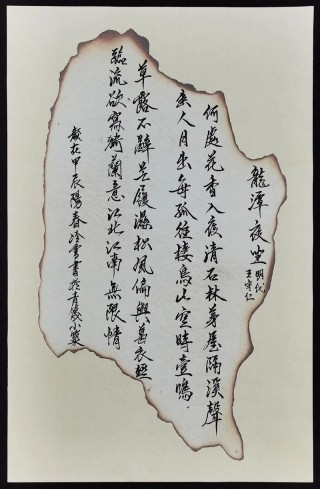 龍潭夜坐 明代
王守仁
何處花香入夜清石林茅屋隔溪聲
幽人月出每孤往棲鳥山空時壹鳴
草露不辭芒屨濕松風偏與葛衣輕
臨流欲寫猗蘭意江北江南無限情
歲在甲辰陽春冷雲書於青小築